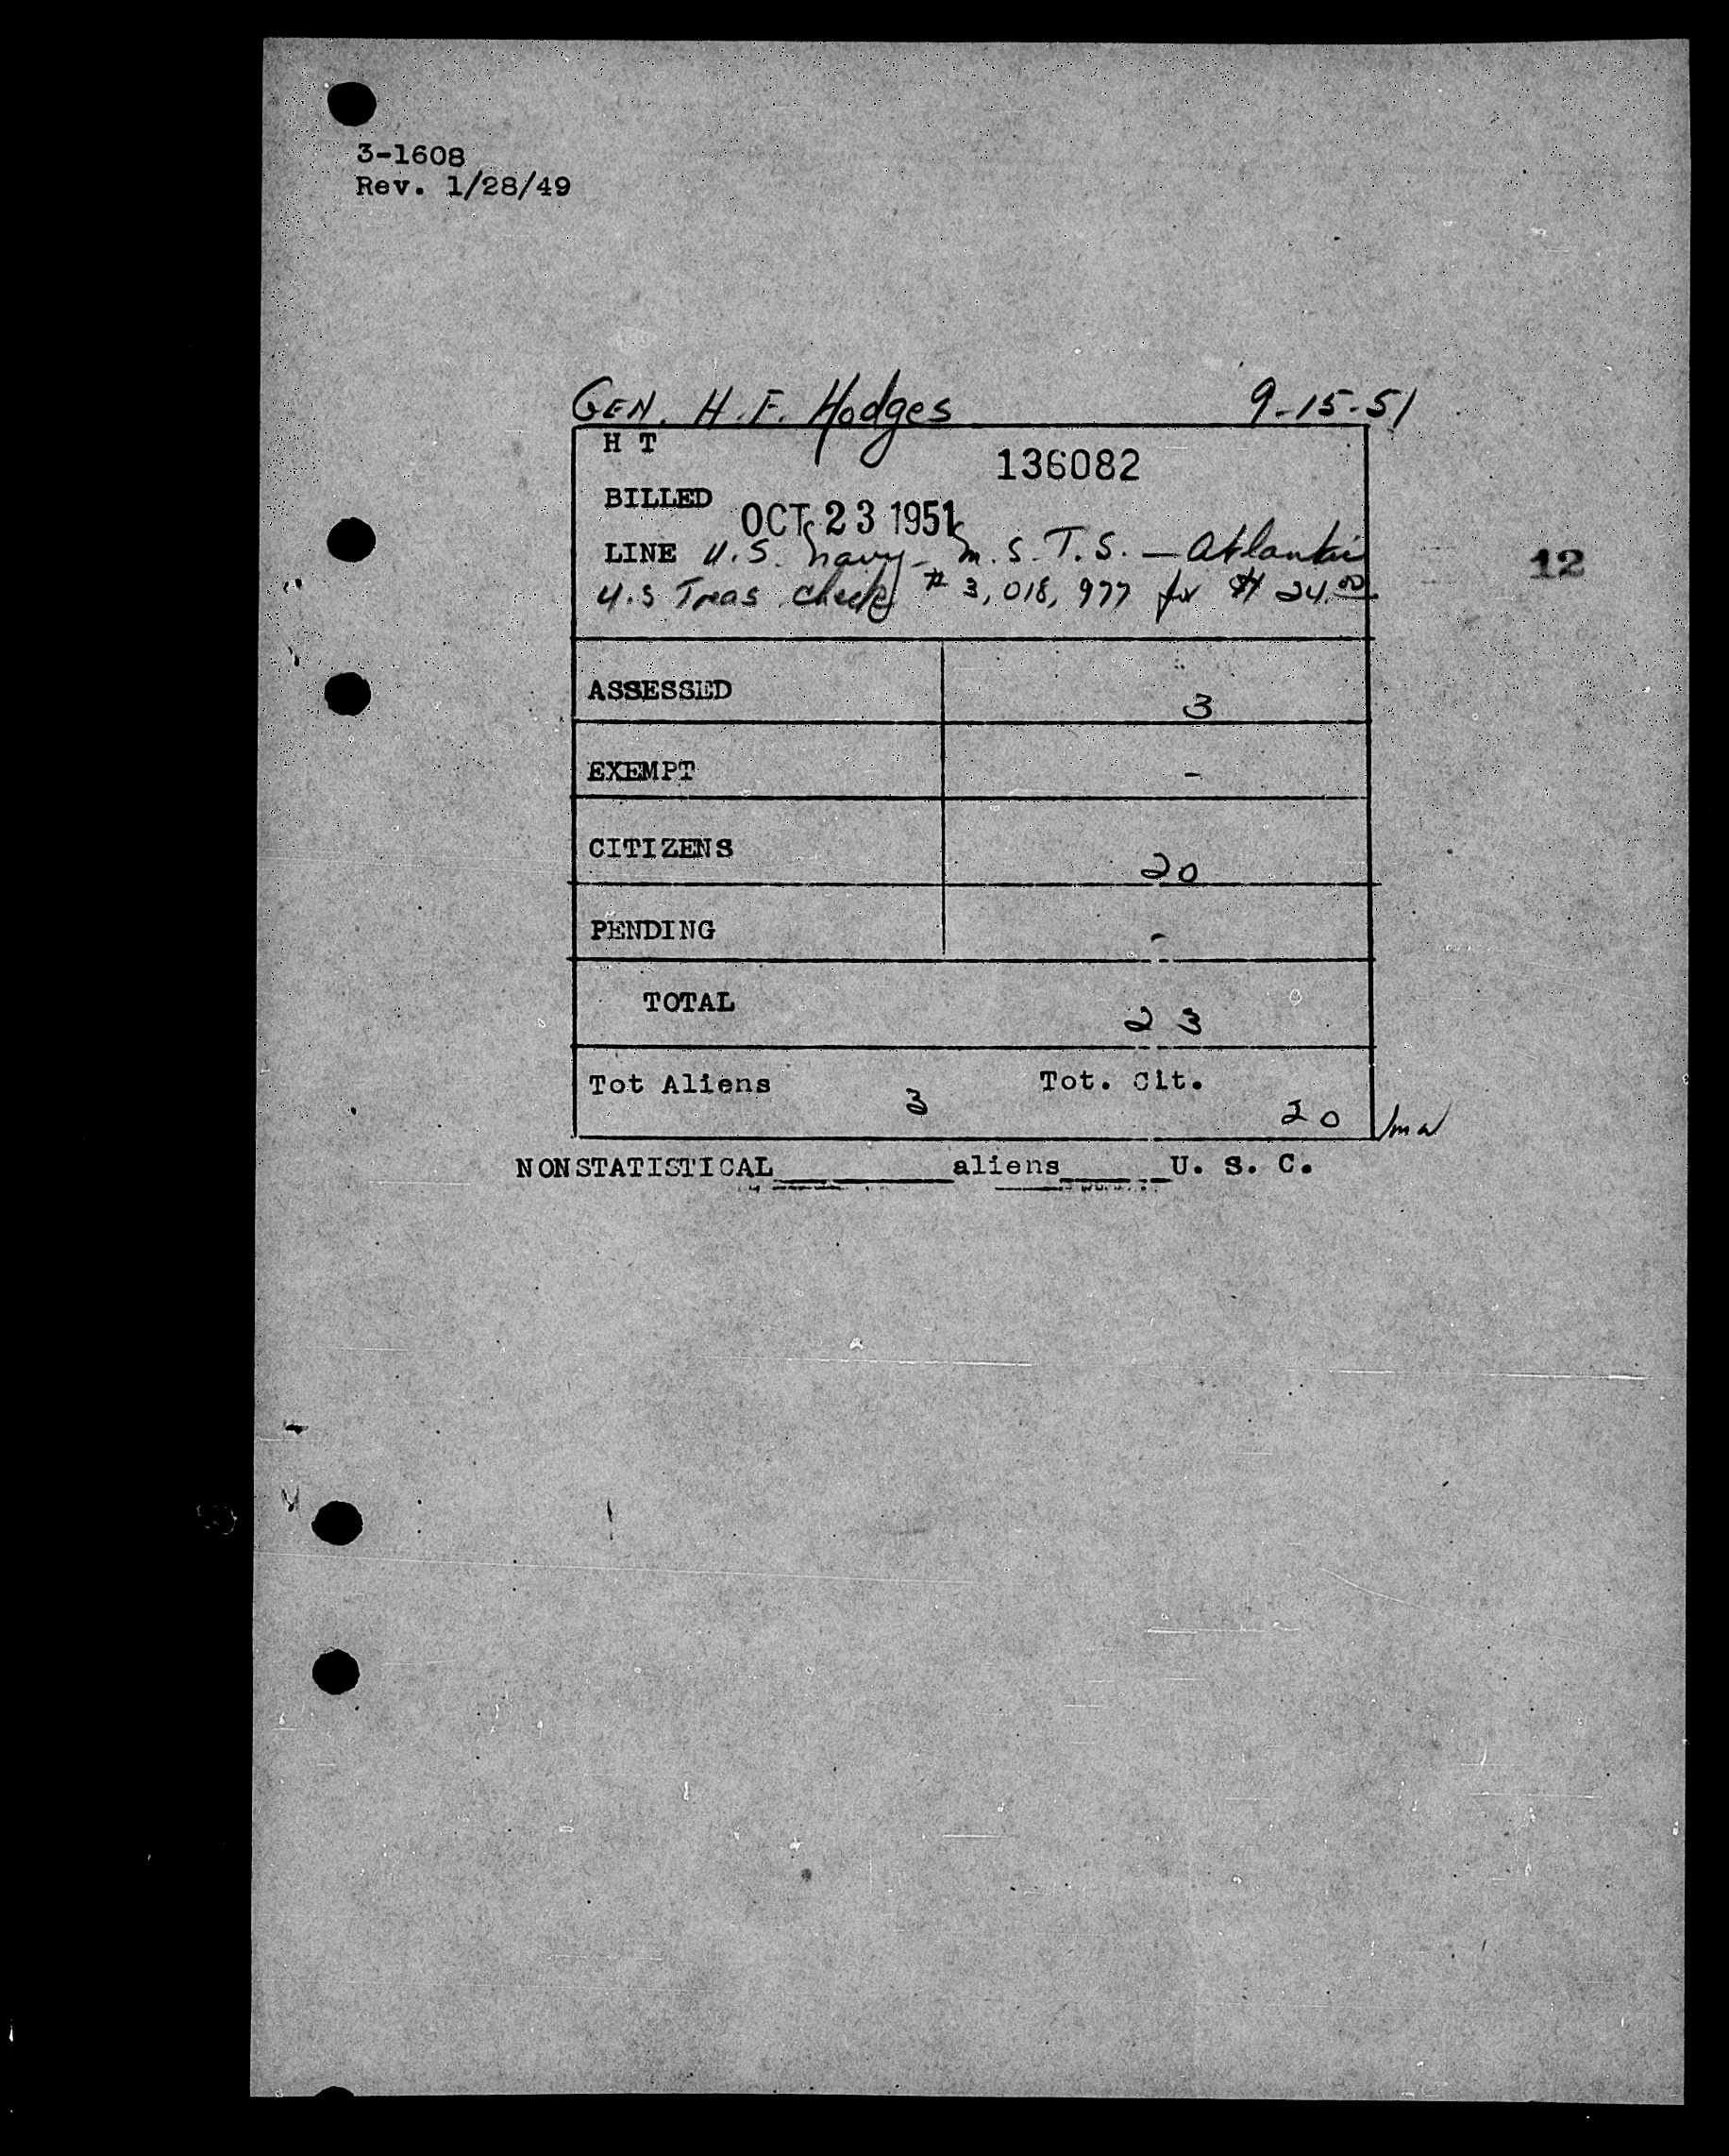 3-1608
Rev. 1/28/49
GEN. H.F. Hodges 9-15-51
H T
136082
BILLED
OCT 23 1951
LINE U.S. Navy - M.S.T.S. - Atlantic
12
U.S Treas. Check # 3,018,977 for $ 24.00
ASSESSED 3
EXEMPT -
CITIZENS 20
PENDING -
TOTAL 23
Tot Aliens 3 Tot. Cit. 20
NONSTATISTICAL aliens U. S. C.